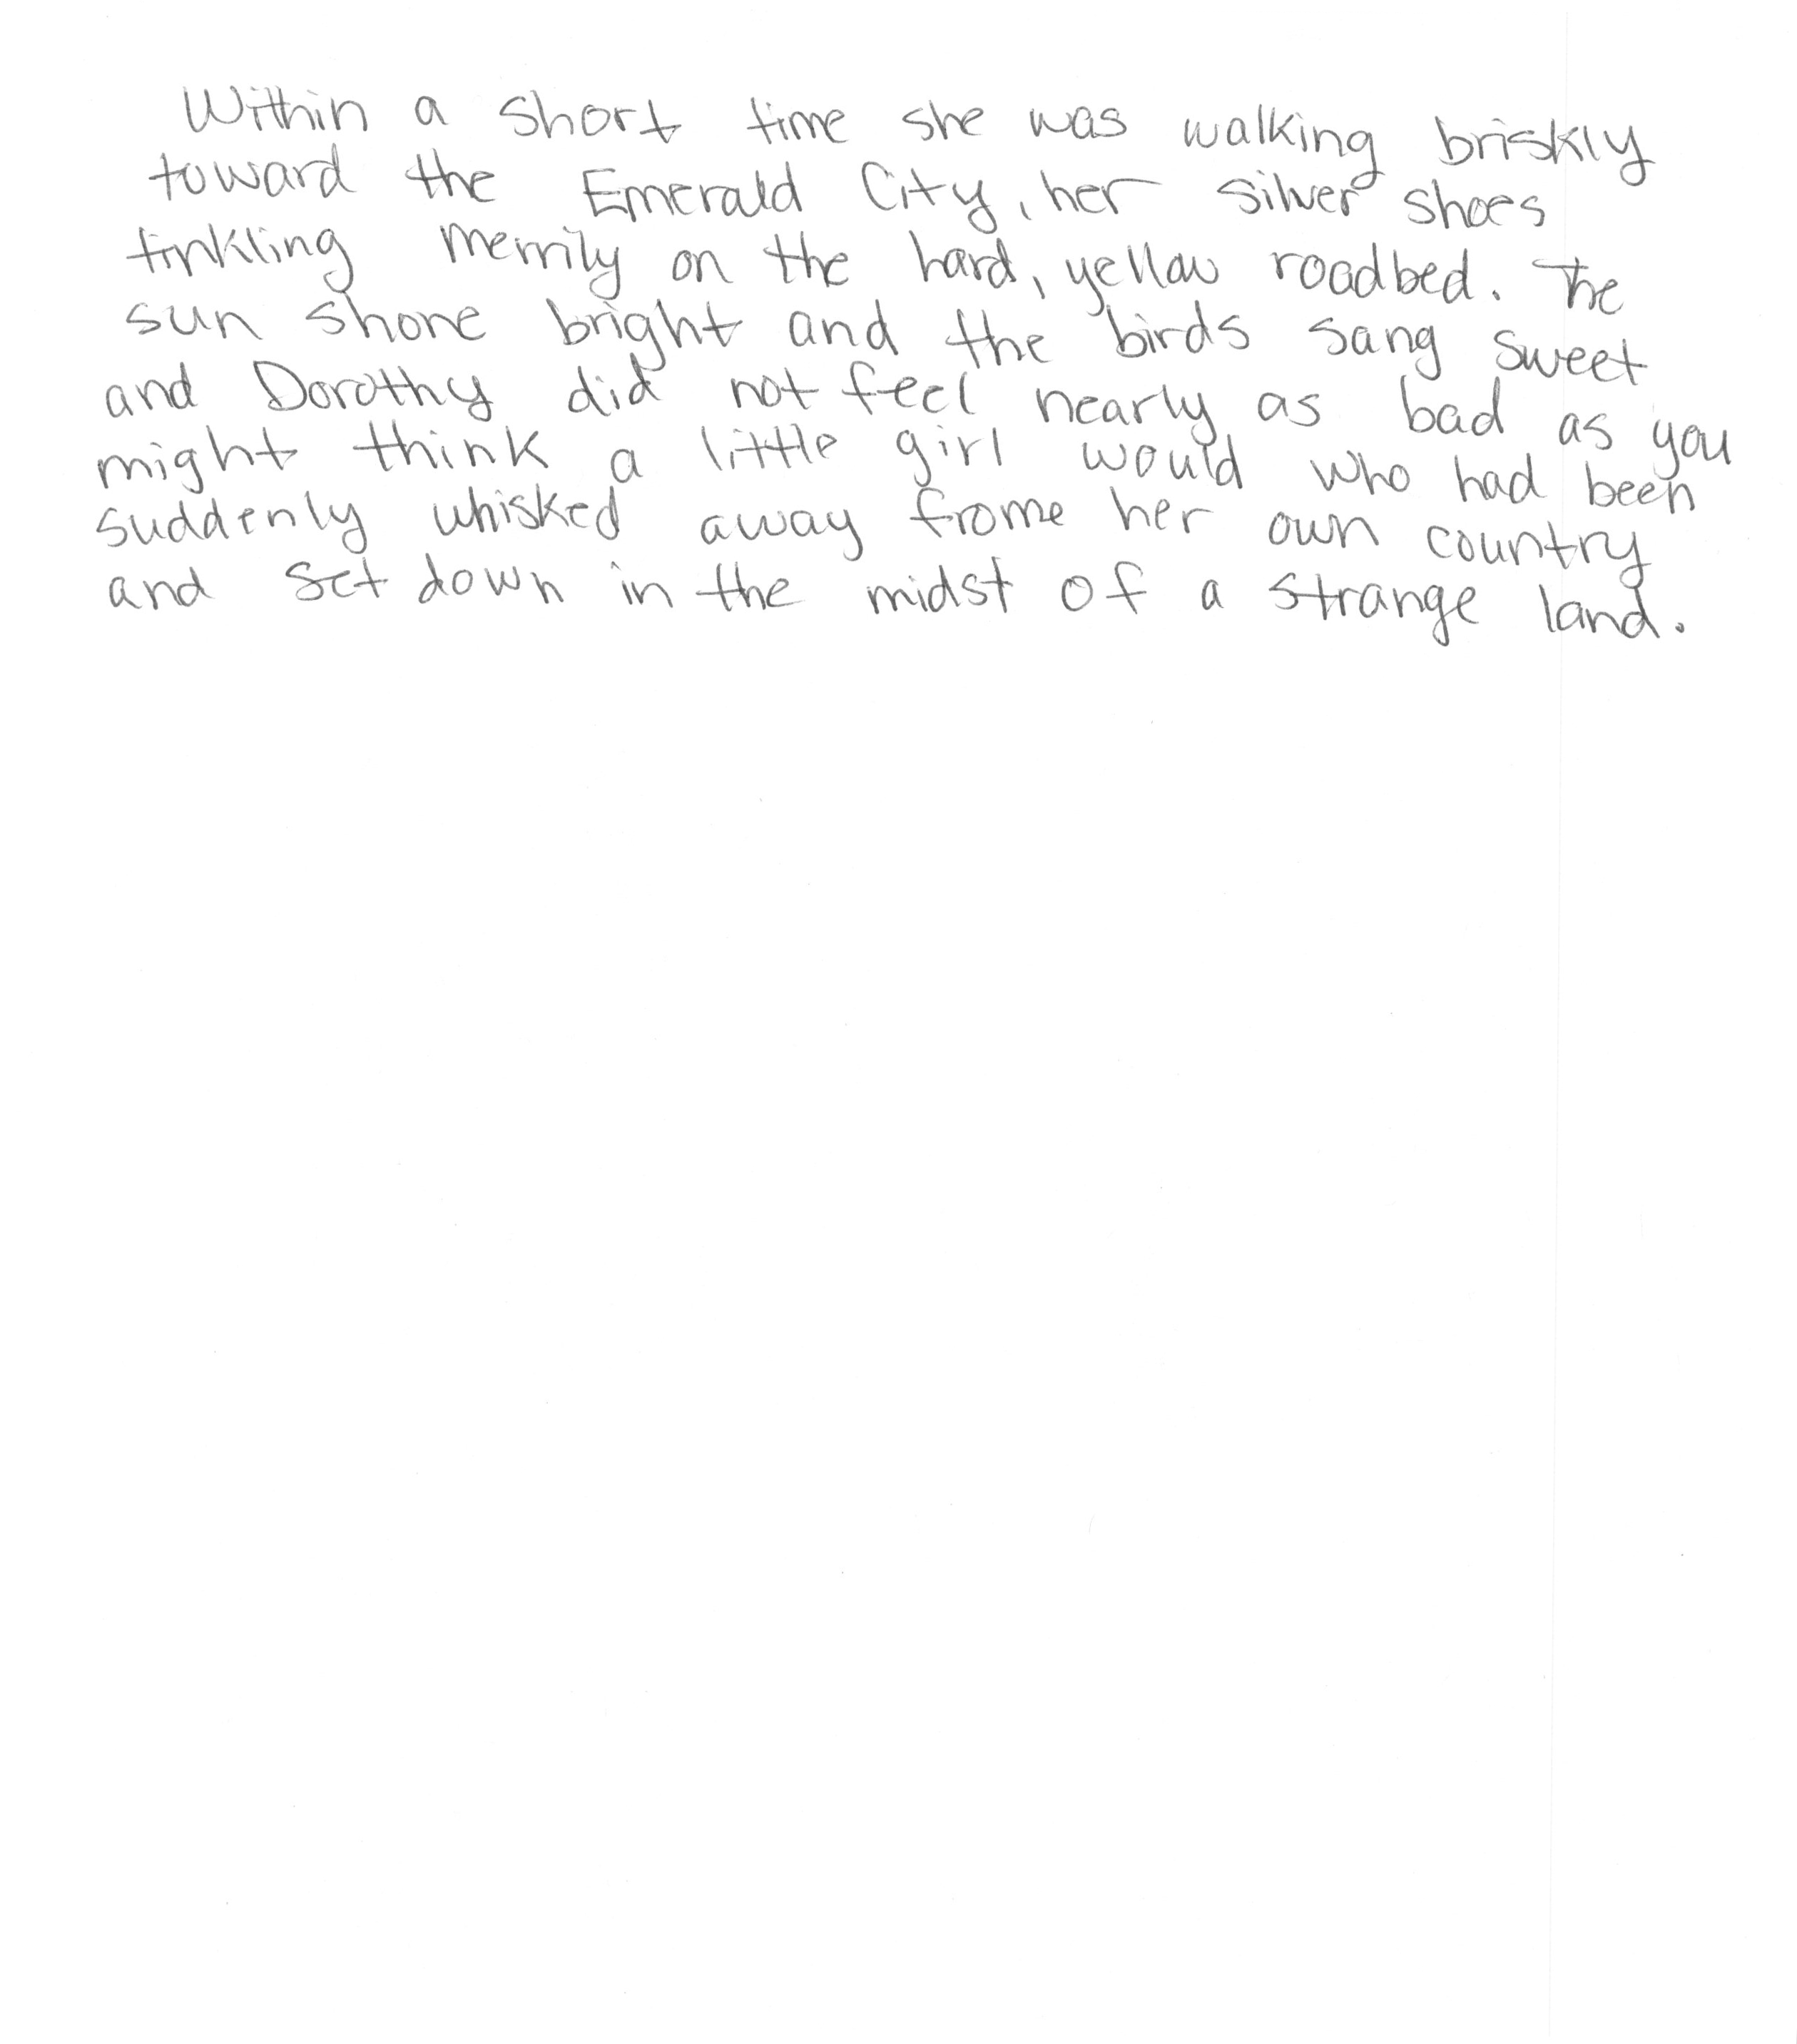 Within a short time she was walking briskly
toward the Emerald City, her silver shoes
tinkling merrily on the hard, yellow roadbed. The
sun shone bright and the birds sang sweet
and Dorothy did not feel nearly as bad as you
might think a little girl would who had been
suddenly whisked away frome her own country
and set down in the midst of a strange land.